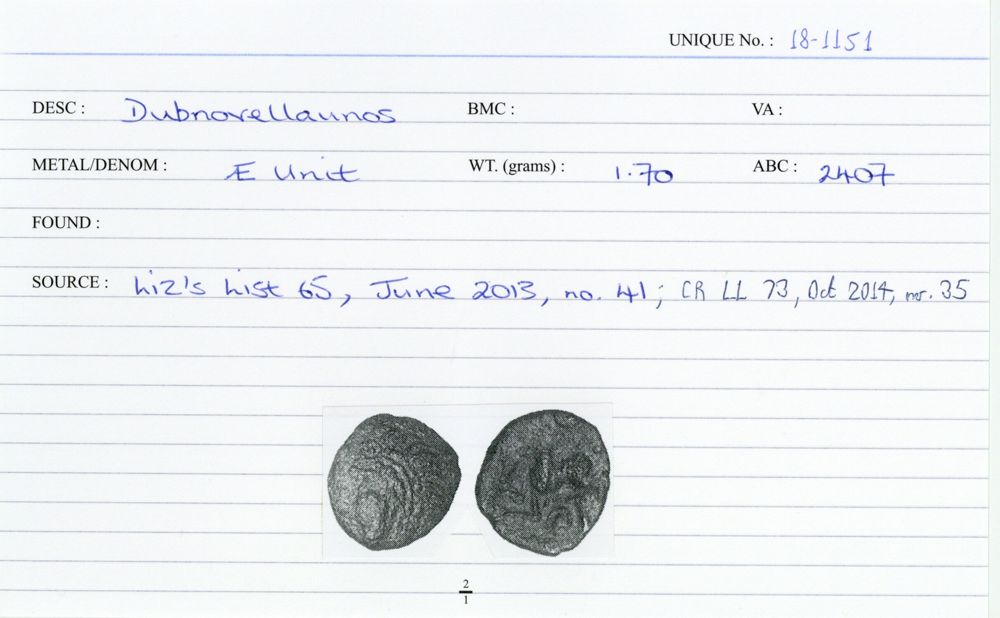 UNIQUE No. : 18-1151
DESC : Dubnovellaunos BMC : VA :
METAL/DENOM : Æ Unit WT. (grams) : 1.70 ABC : 2407
FOUND :
SOURCE : Liz's List 65, June 2013, no. 41; CR LL 73, Oct 2014, nr. 35
2
1